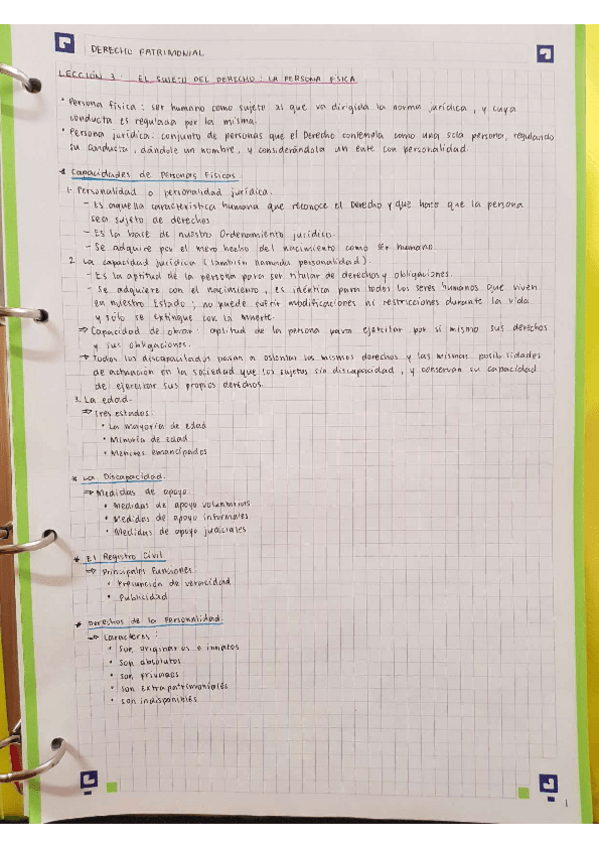 DERECHO PATRIMONIAL
LECCIÓN 3: EL SUJETO DEL DERECHO: LA PERSONA FÍSICA
• Persona física: ser humano como sujeto al que va dirigida la norma jurídica, y cuya
conducta es regulada por la misma.
• Persona jurídica: conjunto de personas que el Derecho contempla como una sola persona, regulando
su conducta, dándole un nombre, y considerándola un ente con personalidad.
* Capacidades de Personas Físicas
1. Personalidad o personalidad jurídica.
- Es aquella característica humana que reconoce el Derecho y que hace que la persona
sea sujeto de derechos
- Es la base de nuestro Ordenamiento jurídico.
- Se adquiere por el mero hecho del nacimiento como ser humano
2. La capacidad jurídica (también llamada personalidad).
- Es la aptitud de la persona para ser titular de derechos y obligaciones.
- Se adquiere con el nacimiento, es idéntica para todos los seres humanos que viven
en nuestro Estado; no puede sufrir modificaciones ni restricciones durante la vida
y sólo se extingue con la muerte.
⇒ Capacidad de obrar: aptitud de la persona para ejercitar por sí mismo sus derechos
y sus obligaciones.
→ Todos los discapacitados pasan a ostentar los mismos derechos y las mismas posibilidades
de actuación en la sociedad que los sujetos sin discapacidad, y conservan su capacidad
de ejercitar sus propios derechos.
3. La edad.
⇒ Tres estados:
• La mayoría de edad
• Minoría de edad
• Menores emancipados
* La Discapacidad.
⇒ Medidas de apoyo
• Medidas de apoyo voluntarias
• Medidas de apoyo informales
• Medidas de apoyo judiciales
* El Registro Civil
⇒ Principales Funciones:
• Presunción de veracidad
• Publicidad
* Derechos de la Personalidad.
⇒ Caracteres:
• Son originarios e innatos
• Son absolutos
• Son privados
• Son extrapatrimoniales
• Son indisponibles
1